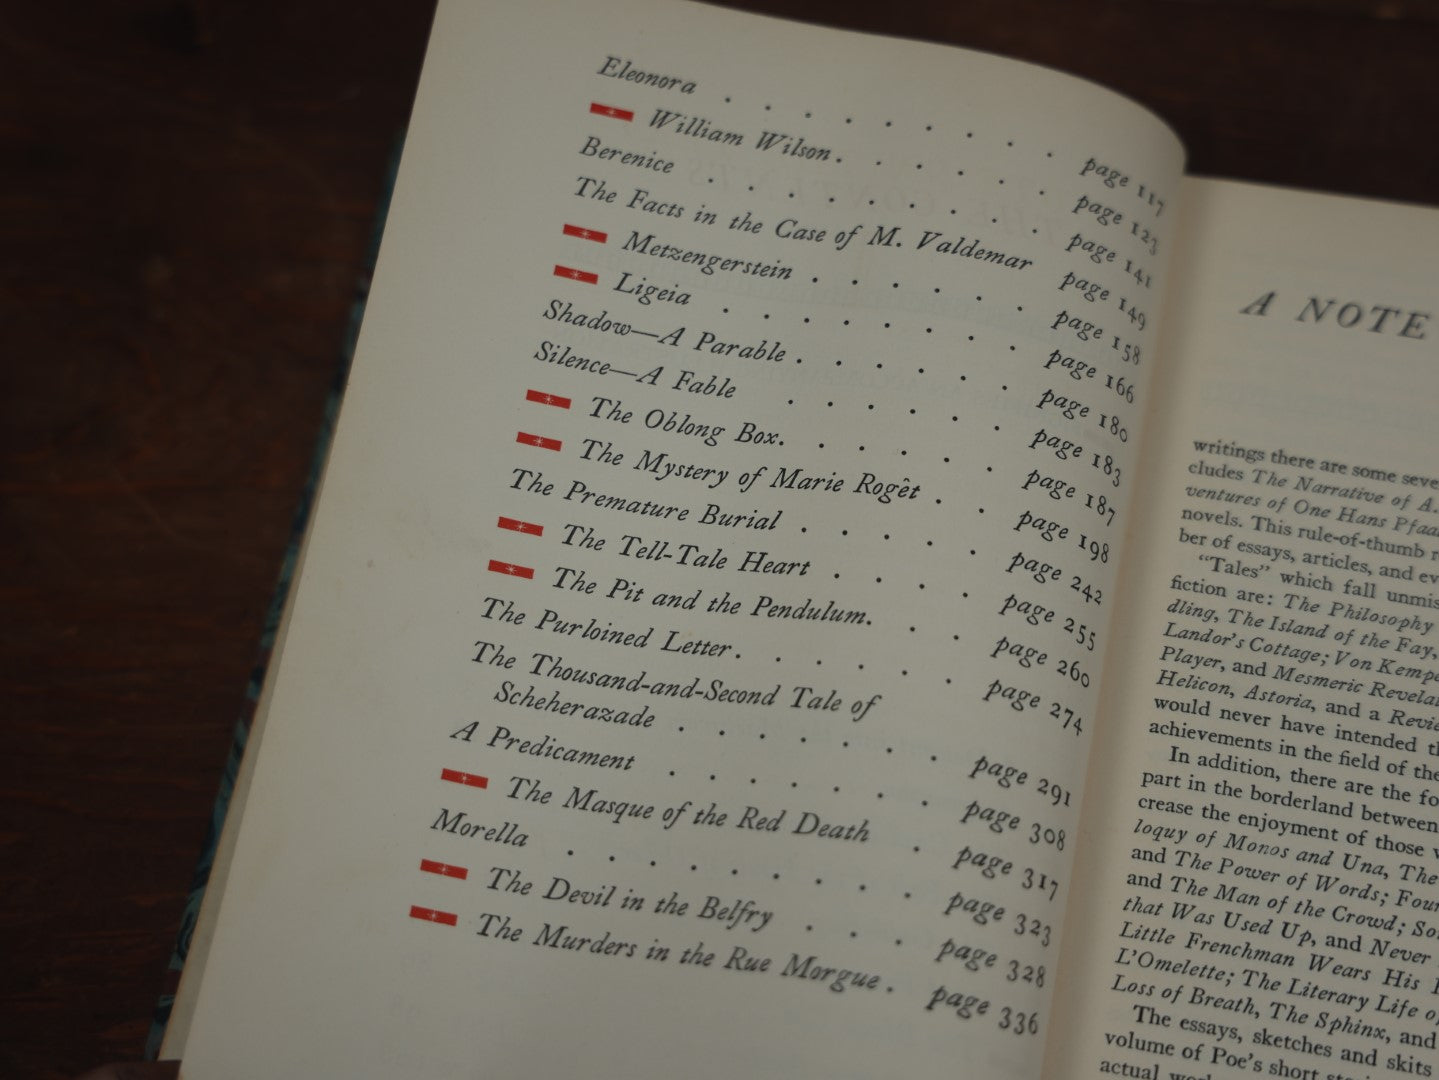 Eleonora . . . . . . . . . page 117
William Wilson . . . . . . page 123
Berenice . . . . . . . . . page 141
The Facts in the Case of M. Valdemar page 149
Metzengerstein . . . . . . page 158
Ligeia . . . . . . . . page 166
Shadow—A Parable . . . . . . page 180
Silence—A Fable . . . . . . page 183
The Oblong Box . . . . . . page 187
The Mystery of Marie Rogêt . . page 198
The Premature Burial . . . . . page 242
The Tell-Tale Heart . . . . page 255
The Pit and the Pendulum . . . page 260
The Purloined Letter . . . . . . page 274
The Thousand-and-Second Tale of
Scheherazade . . . . . . . page 291
A Predicament . . . . . . . page 308
The Masque of the Red Death . page 317
Morella . . . . . . . . . page 323
The Devil in the Belfry . . . page 328
The Murders in the Rue Morgue . page 336
A NOTE
writings there are some seve
cludes The Narrative of A.
ventures of One Hans Pfaa
novels. This rule-of-thumb
ber of essays, articles, and ev
"Tales" which fall unmis
fiction are: The Philosophy
dling, The Island of the Fay,
Landor's Cottage; Von Kempe
Player, and Mesmeric Revela
Helicon, Astoria, and a Revi
would never have intended th
achievements in the field of the
In addition, there are the fo
part in the borderland between
crease the enjoyment of those
loquy of Monos and Una, The
and The Power of Words; Four
and The Man of the Crowd; So
that Was Used Up, and Never
Little Frenchman Wears His
L'Omelette; The Literary Life o
Loss of Breath, The Sphinx, and
The essays, sketches and skits
volume of Poe's short
actual